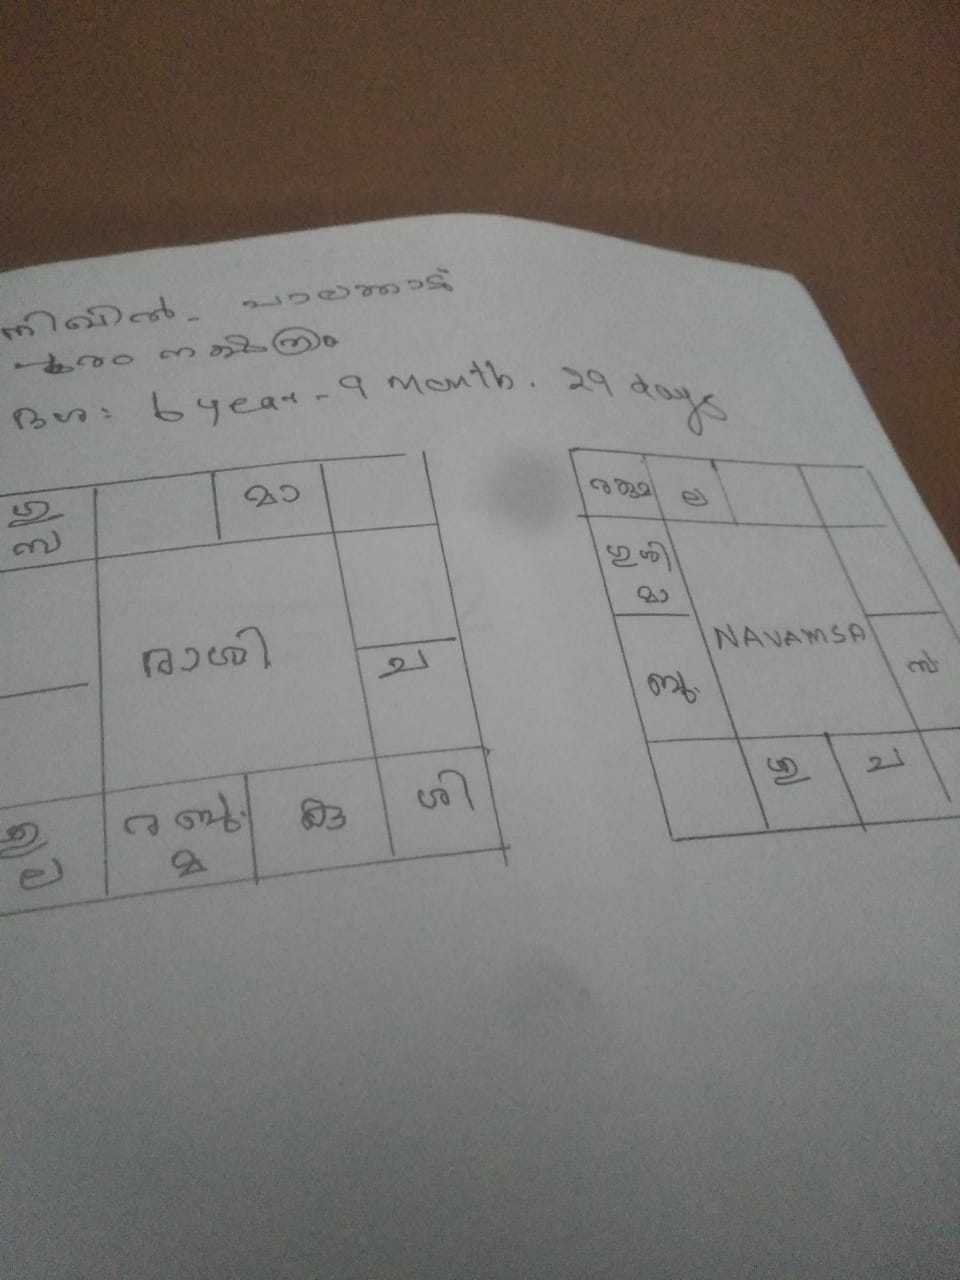 നിഖിൽ - പാലക്കാട്
പൂരം നക്ഷത്രം
ദശ: 6 year - 9 Month . 29 days
ഗു
സ
മാ
രാശി
ച
ഗു
ല
ര ബു
മ
കു
ശി
ല
ഗു ശി
മാ
NAVAMSA
ബു
സ
ഗു
ച